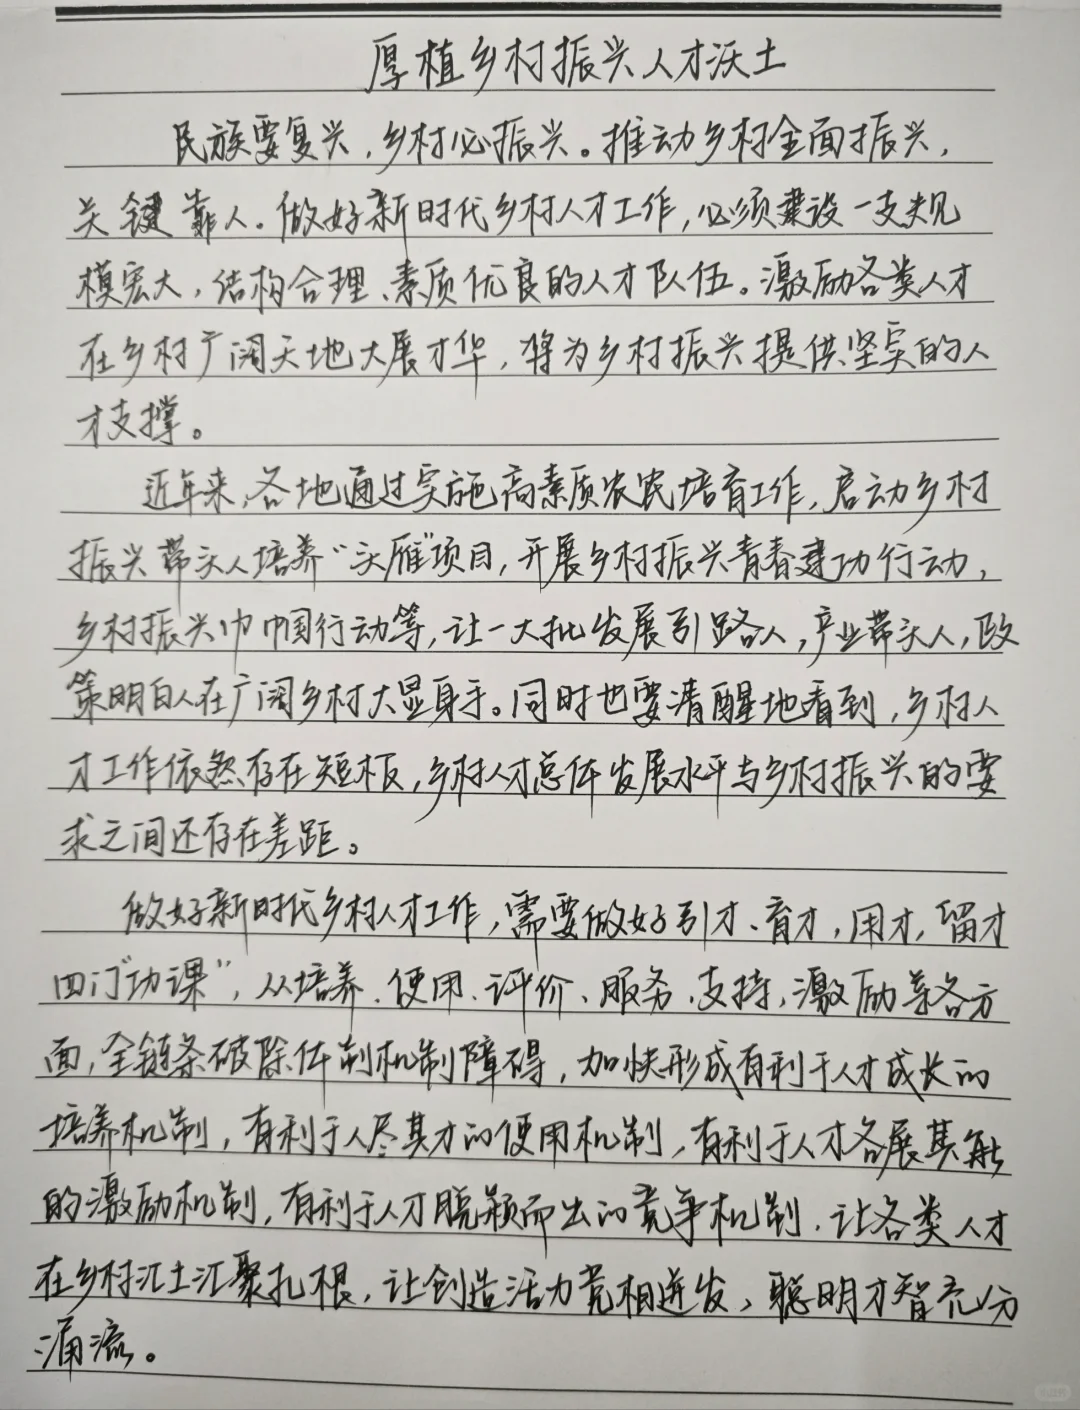 厚植乡村振兴人才沃土
民族要复兴，乡村必振兴。推动乡村全面振兴，
关键靠人。做好新时代乡村人才工作，必须建设一支规
模宏大，结构合理、素质优良的人才队伍。激励各类人才
在乡村广阔天地大展才华，将为乡村振兴提供坚实的人
才支撑。
近年来，各地通过实施高素质农民培育工作，启动乡村
振兴带头人培养“头雁”项目，开展乡村振兴青春建功行动，
乡村振兴巾帼行动等，让一大批发展引路人，产业带头人，政
策明白人在广阔乡村大显身手。同时也要清醒地看到，乡村人
才工作依然存在短板，乡村人才总体发展水平与乡村振兴的要
求之间还存在差距。
做好新时代乡村人才工作，需要做好引才、育才，用才，留才
四门“功课”，从培养、使用、评价、服务、支持，激励等各方
面，全链条破除体制机制障碍，加快形成有利于人才成长的
培养机制，有利于人尽其才的使用机制，有利于人才各展其能
的激励机制，有利于人才脱颖而出的竞争机制，让各类人才
在乡村汇土汇聚扎根，让创造活力竞相迸发，聪明才智充分
涌流。